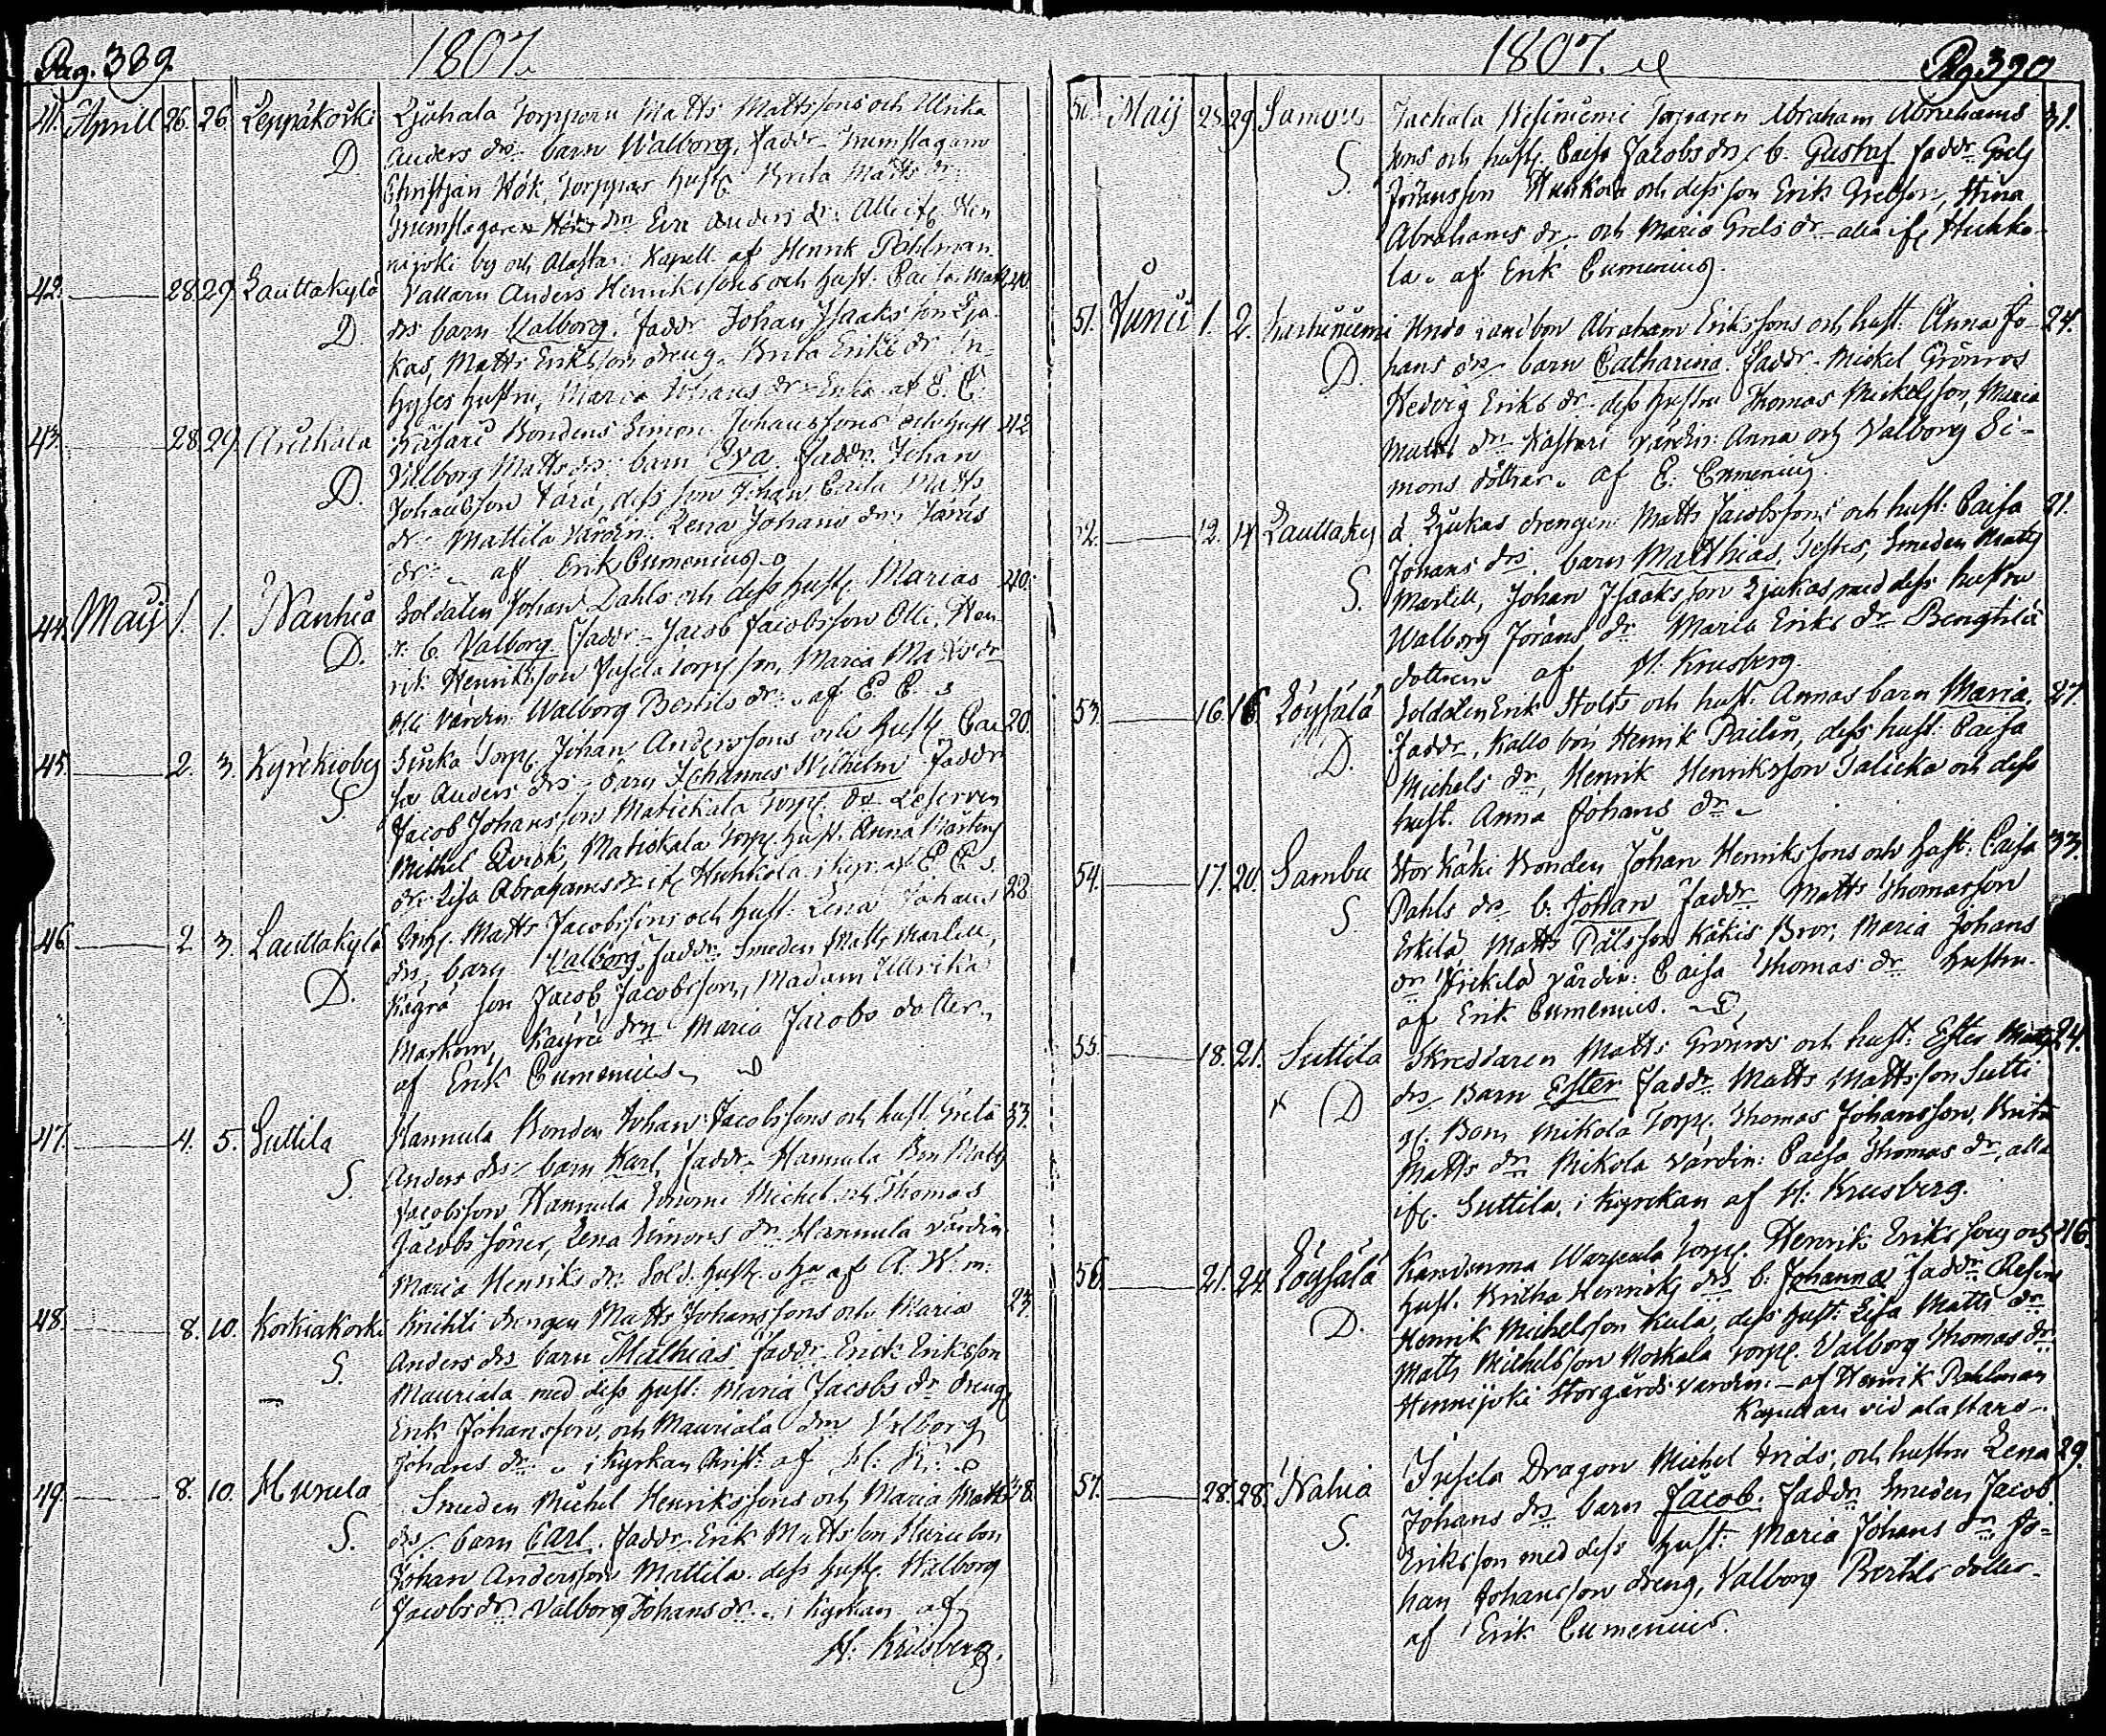 Pag. 389. 1807.
41. Aprill 26. 26. Leppäkoski Ljuhala Torpparn Matts Mattssons och Ulrika
D. Anders dr barn Walborg, faddr Trumslagarn
Christjan Hök, Torppar hust. Brita Matts dr
Trumslagaren Höks dr Eva Anders dr. Alla
by och Alastaro Kapell. af Henrik Pahlman
42. 28. 29. Lauttakylä Vallarn Anders Henrikssons och hust. Caisa Matts 40
D dr barn Valborg. faddr Johan Isaaksson Lju-
kas, Matts Eriksson dreng. Brita Eriks dr In-
hyses hustru, Maria Johans dr Enka. af E. C.
43. 28. 29. Anthola Bondens Simon Johanssons och hust 42
D. Valborg Matts dr barn Eva. faddr. Johan
Johansson dess son Johan Caisa Matts
dr Mattila värdin. Lena Johans dr
dr. af Erik Cumenius
44. Maij 1. 1. Wanhia Soldaten Johan Dahls och dess hust. Marias 40.
D. b. Valborg faddr Jacob Jacobsson Olli, Hen-
rik Henriksson torp son, Maria Matts dr
Olli värdin Walborg Bertils dr. af E. C.
45. 2. 3. Kyrckioby Torp. Johan Anderssons och hust. Cai 20.
S sa Anders dr barn Johannes Wilhelm faddr
Jacob Johansson Matickala Torp. Reserven
Michel Qvick, Matickala Torp. hust. Anna Mårtens
dr Lisa Abrahams dr if. Huhkola i kyr. af E. C.
46. 2 3. Lauttakylä Inhy. Matts Jacobssons och hust. Lena Johans 28
D. dr barn Valborg, faddr Smeden Matts Martell,
son Jacob Jacobsson, Madam Ullrika
dr Maria Jacobs dotter
af Erik Cumenius
47. 4. 5. Suttila Hannula Bonden Johan Jacobssons och hust Greta 33.
S. Anders dr barn Karl, faddr Hannula Bon Matts
Jacobsson Hannula Michel och Thomas
Jacobs söner, Lena Simons dr Hannula värdin
Maria Henriks dr. Sold. hust. af A. W.
48. 8. 10. Korkiakoski Knihti drengen Matts Johanssons och Maria 23.
S. Anders dr barn Mathias faddr Erik Eriksson
Mauriala med dess hust: Maria Jacobs dr dreng
Erik Johansson, och Mauriala drn Valborg
Johans dr i kyrkan Christ. af H. K.
49. 8. 10. Hurula Smeden Michel Henrikssons och Maria Matts 28.
S. dr barn Carl. faddr. Erik Mattsson
Johan Andersson Mattila dess hust. Walborg
Jacobs dr Valborg Johans dr. i kyrkan af
H. Krusberg.
1807. Pag 390
50. Maij 28. 29. Sammu Torparen Abraham Abrahams 31.
S. sons och hust. Caisa Jacobs dr b. Gustaf faddr Grels
Johansson Huhkola och dess son Erik Grelsson, Stina
Abrahams dr och Maria Grels dr alla if. Huhko
la. af Erik Cumenius.
51. Junii 1. 2. Abraham Erikssons och hust. Anna Jo- 24.
D. hans dr barn Catharina. faddr. Mickel Grönros
Hedvig Eriks dr dess hustru Thomas Mickelsson, Maria
Matts dr Kastari värdin: Anna och Valborg Si-
mons döttrar. af E. Cumenius.
52. 12. 14 Lauttaky ä Ljukas drengen Matts Jacobssons och hust. Caisa 21.
S. Johans dr barn Matthias, Testes, Smeden Matts
Martell, Johan Isaaksson Ljukas med dess hustru
Walborg Jörans dr Maria Eriks dr Bengtilä
dottren af H. Krusberg
53. 16. 16. Löysälä Soldaten Erik Stolts och hust. Annas barn Maria. 27.
D. faddr, Kallo bon Henrik Pailin, dess hust. Caisa
Michels dr, Henrik Henriksson Talicka och dess
hust. Anna Johans dr
54. 17. 20. Sambu Stor Käki Bonden Johan Henrikssons och hust. Caisa 33.
S Påhls dr b. Johan faddr Matts Thomasson
Erkilä, Matts Pålsson Käkis Bror, Maria Johans
dr värdin. Caisa Thomas dr hustru
af Erik Cumenius.
55. 18. 21. Suttila Skreddaren Matts Grönros och hust. Ester Matts 24.
x D dr Barn Ester faddr Matts Mattsson Sutti
Mikola Torp. Thomas Johansson, Brita
Matts dr Mikola värdin: Caisa Thomas dr, alla
if. Suttila, i kyrckan af H: Krusberg.
56. 21. 24. Löysälä Torp. Henrik Erikssons och 46.
D. hust. Britha Henriks dr b. Johanna faddr
Henrik Michelsson Kula, dess hust: Lisa Matts dr
Matts Michelsson Torp. Valborg Thomas dr
Hennijoki Storgårds värdin. af Henrik Pahlman
Kapellan vid Alastaro
57. 28. 28. Wahia Dragon Michel Frids, och hustru Lena 29.
S. Johans dr barn Jacob. faddr Smeden Jacob
Eriksson med dess hust: Maria Johans dr Jo-
han Johansson dreng, Valborg Bertils dotter
af Erik Cumenius.